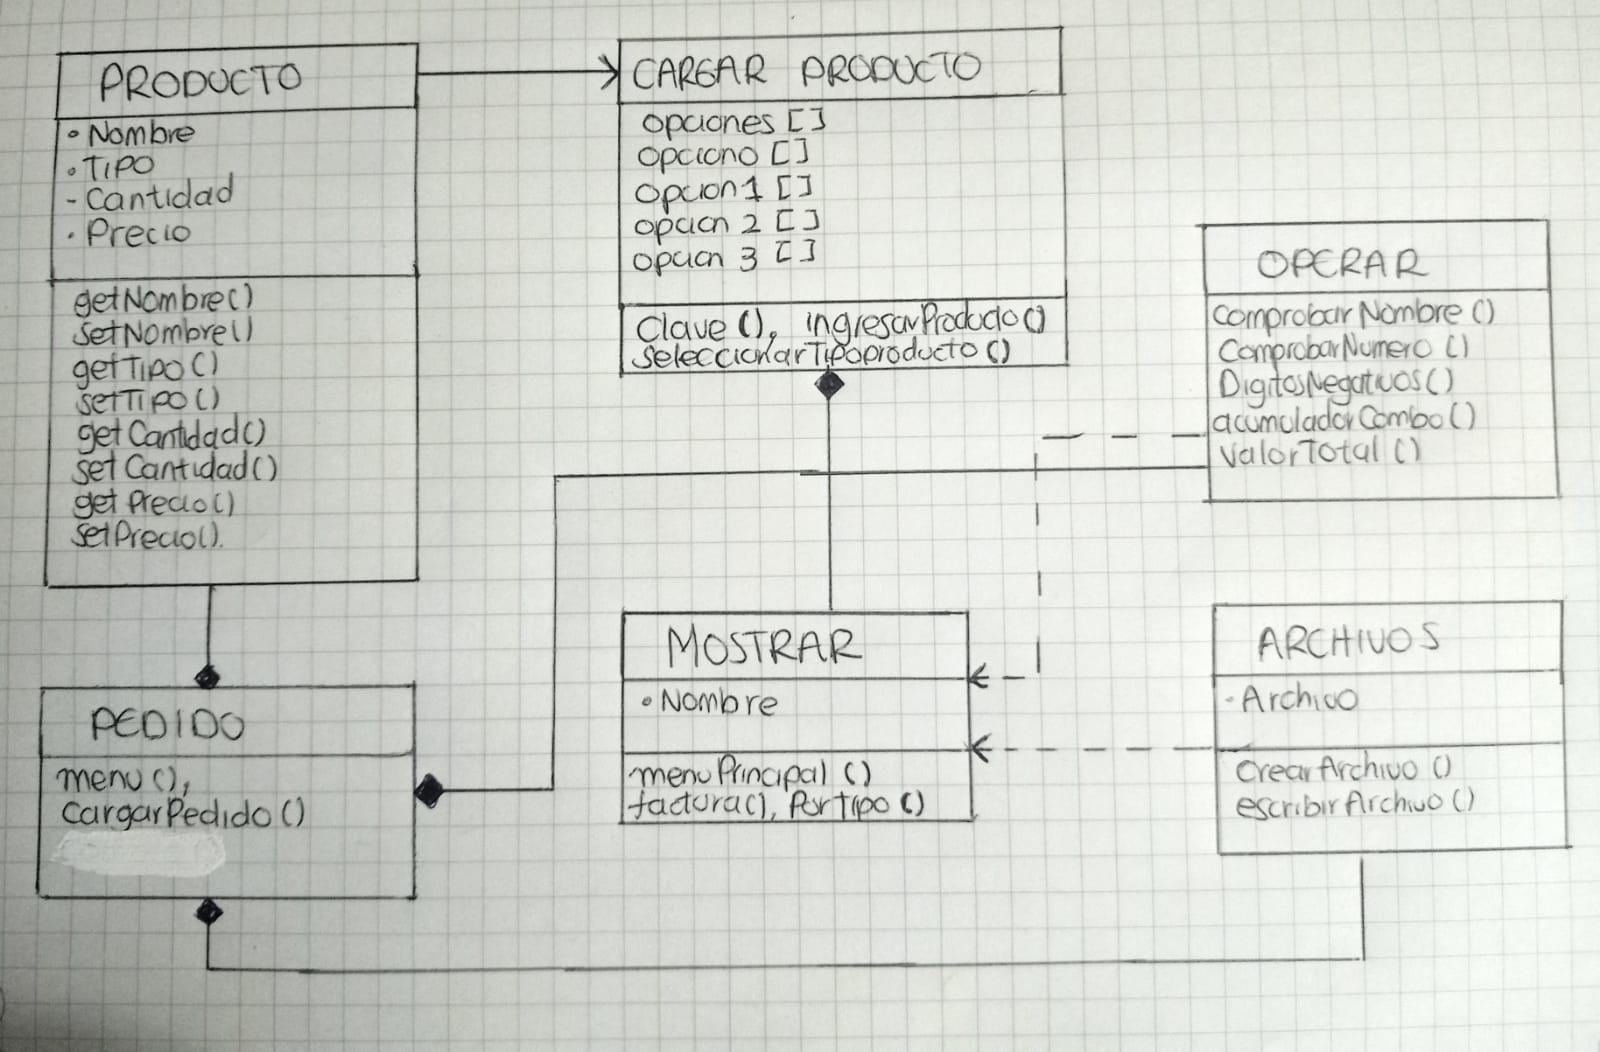 PRODUCTO
• Nombre
• TIPO
- Cantidad
· Precio
getNombre()
setNombre()
getTIPO()
setTIPO()
getCantidad()
setCantidad()
get Precio()
setPrecio().
CARGAR PRODUCTO
opciones []
opciono []
opcion1 []
opcion 2 []
opcion 3 []
Clave (), ingresarProducto()
seleccionarTipoproducto()
OPERAR
comprobarNombre()
ComprobarNumero()
DigitosNegativos()
acumuladorCombo()
ValorTotal()
PEDIDO
menu(),
cargarPedido()
MOSTRAR
• Nombre
menuPrincipal ()
factura(), PorTipo()
ARCHIVOS
· Archivo
CrearArchivo()
escribirArchivo()